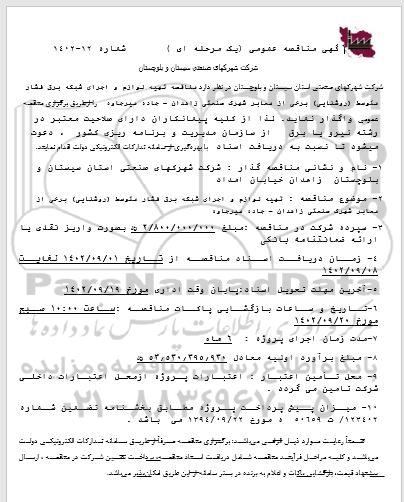 آگهی مناقصه عمومی (یک مرحله ای ) شماره ۱۲-۱۴۰۲
شرکت شهرکهای صنعتی سیستان و بلوچستان
شرکت شهرکهای صنعتی استان سیستان و بلوچستان در نظر دارد مناقصه تهیه لوازم و اجرای شبکه برق فشار
متوسط (روشنایی) برخی از معابر شهرک صنعتی زاهدان – جاده میرجاوه را از طریق برگزاری مناقصه
عمومی واگذار نماید. لذا از کلیه پیمانکاران دارای صلاحیت معتبر در
رشته نیرو یا برق از سازمان مدیریت و برنامه ریزی کشور ، دعوت
میشود تا نسبت به دریافت اسناد با بهره‌گیری از سامانه تدارکات الکترونیکی دولت اقدام نمایند.
۱- نام و نشانی مناقصه گذار : شرکت شهرکهای صنعتی استان سیستان و
بلوچستان زاهدان خیابان امداد
۲- موضوع مناقصه : تهیه لوازم و اجرای شبکه برق فشار متوسط (روشنایی) برخی از
معابر شهرک صنعتی زاهدان – جاده میرجاوه
۳- سپرده شرکت در مناقصه :مبلغ ۲/۸۰۰/۰۰۰/۰۰۰ بصورت واریز نقدی یا
ارائه ضمانتنامه بانکی
۴- زمان دریافت اسناد مناقصه از تاریخ ۱۴۰۲/۰۹/۰۱ لغایت
۱۴۰۲/۰۹/۰۸
۵-آخرین مهلت تحویل اسناد:پایان وقت اداری مورخ ۱۴۰۲/۰۹/۱۹
۶-تاریخ و ساعات بازگشایی پاکات مناقصه :ساعت ۱۰:۰۰ صبح
مورخ ۱۴۰۲/۰۹/۲۰
۷-مدت زمان اجرای پروژه : ۶ ماه
۸- مبلغ برآورد اولیه معادل ۵۳,۵۳۰,۳۹۵,۹۳۰
۹- محل تامین اعتبار : اعتبارات پروژه ازمحل اعتبارات داخلی
شرکت تامین می گردد .
۱۰- میزان پیش پرداخت پروژه مطابق بخشنامه تضمین شماره
۱۲۳۴۰۲/ت ۵۰۶۵۹ ه مورخ ۱۳۹۴/۰۹/۲۲ می باشد .
ضمناً رعایت موارد ذیل الزامی می‌باشد: برگزاری مناقصه صرفاً از طریق سامانه تدارکات الکترونیکی دولت
می‌باشد و کلیه مراحل فرآیند مناقصه شامل دریافت اسناد مناقصه، پرداخت تضمین شرکت در مناقصه ، ارسال
پیشنهاد قیمت، بازگشایی پاکات و اعلام به برنده در بستر سامانه از این طریق امکان پذیر می‌باشد.